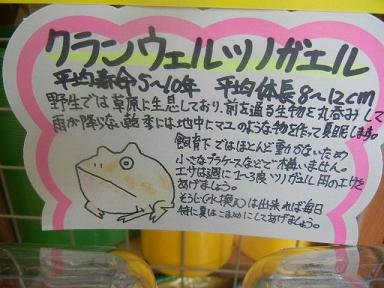 クランウェルツノガエル
平均寿命5〜10年 平均体長8〜12cm
野生では草原に生息しており、前を通る生物を丸呑みして
雨が降らない乾季には地中にマユのような物を作って夏眠します。
飼育下ではほとんど動かないため
小さなプラケースなどでも構いません。
エサは週に1〜3度ツノガエル用のエサを
あげましょう。
そうじ(水換え)は出来れば毎日
特に夏はこまめにしてあげましょう。